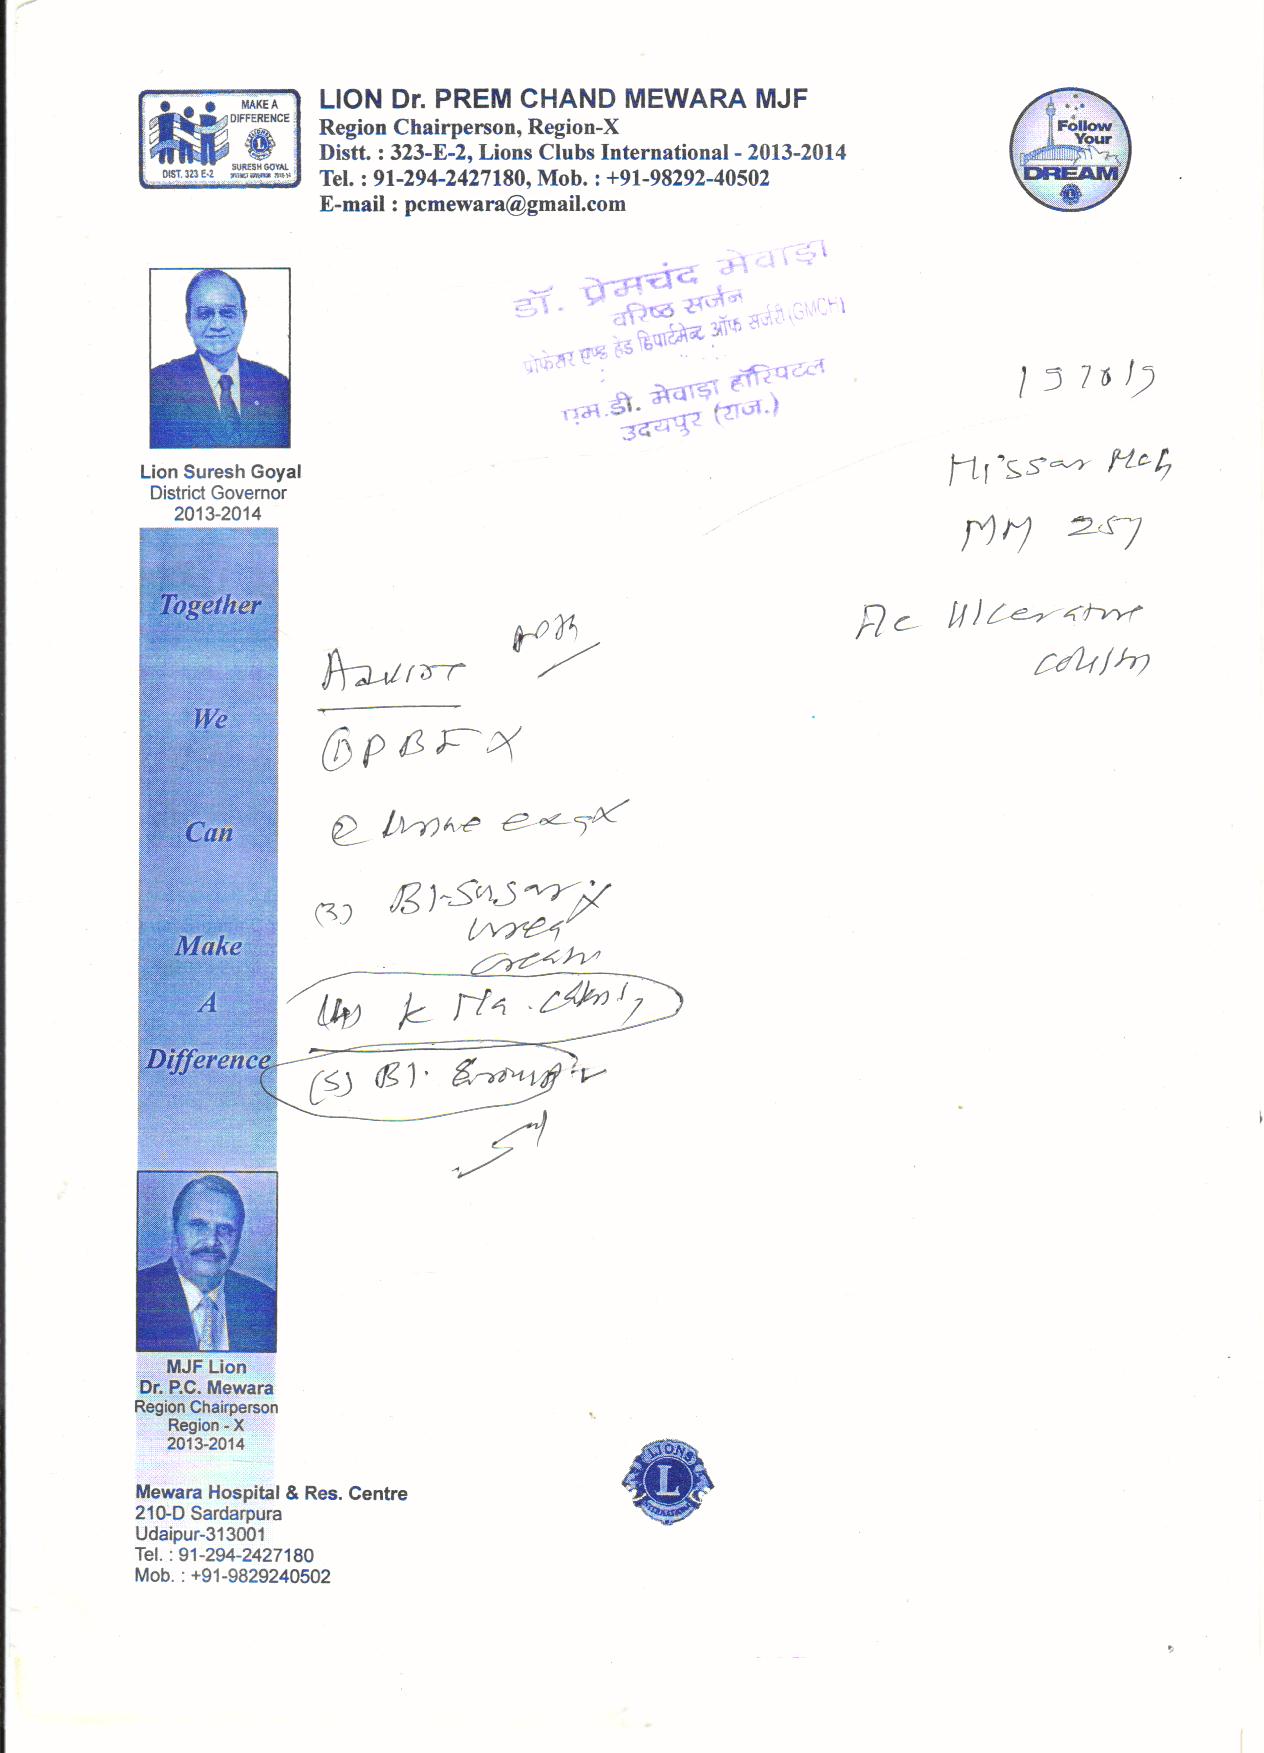 MAKE A
DIFFERENCE
SURESH GOYAL
DIST. 323 E-2
LION Dr. PREM CHAND MEWARA MJF
Region Chairperson, Region-X
Distt. : 323-E-2, Lions Clubs International - 2013-2014
Tel. : 91-294-2427180, Mob. : +91-98292-40502
E-mail : pcmewara@gmail.com
Follow
Your
DREAM
डॉ. प्रेमचंद मेवाड़ा
वरिष्ठ सर्जन
प्रोफेसर एण्ड हेड डिपार्टमेन्ट ऑफ सर्जरी (GMCH)
एम.डी. मेवाड़ा हॉस्पिटल
उदयपुर (राज.)
Lion Suresh Goyal
District Governor
2013-2014
MM 25y
Ac Ulcerative
colitis
Together
We
Can
Make
A
Difference
Advise
(1) P B F
(2) Urine
(3) Bl-Sugar
urea
(4) K Na
(5) Bl. Group
MJF Lion
Dr. P.C. Mewara
Region Chairperson
Region - X
2013-2014
LIONS
L
INTERNATIONAL
Mewara Hospital & Res. Centre
210-D Sardarpura
Udaipur-313001
Tel. : 91-294-2427180
Mob. : +91-9829240502